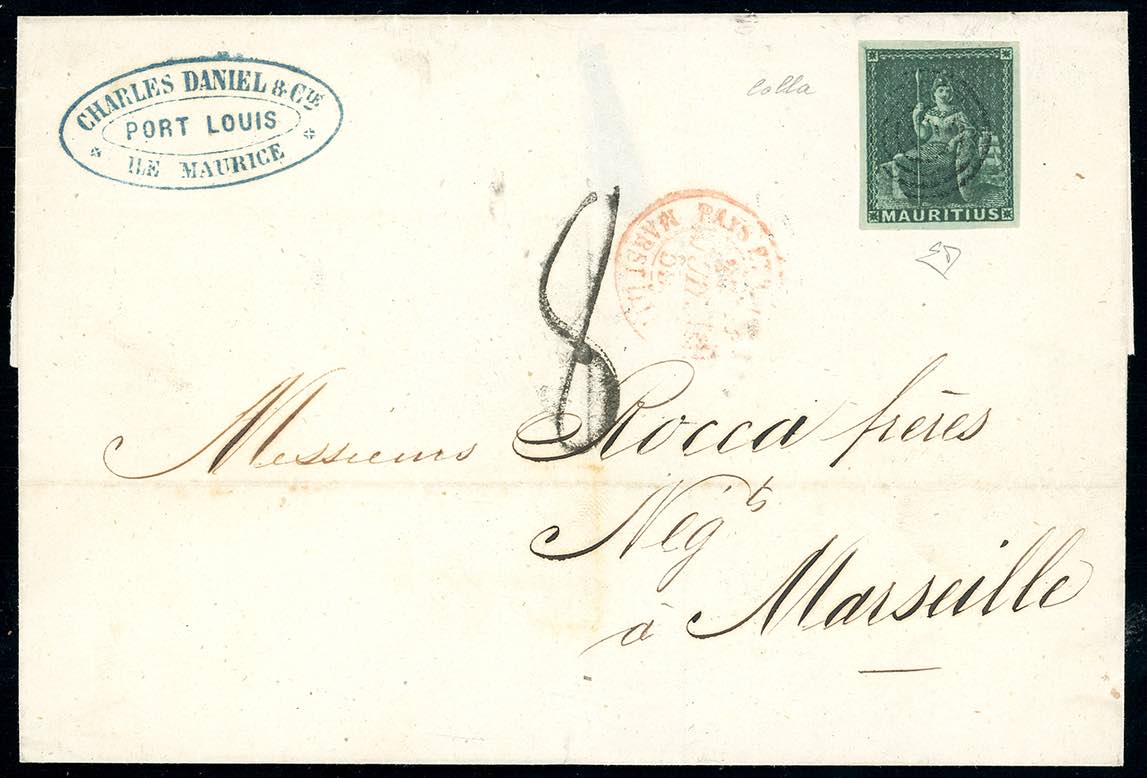 CHARLES DANIEL & Cie
PORT LOUIS
ILE MAURICE
Colla
MAURITIUS
8
MARSEILLE
PAYS
Messieurs Rocca frères
Négts
à Marseille